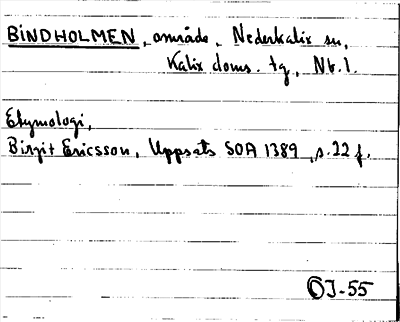 BINDHOLMEN, område, Nederkalix sn,
Kalix doms. tg, Nb. l.
Etymologi,
Birgit Ericsson, Uppsats SOA 1389, s. 22 f.
OJ-55